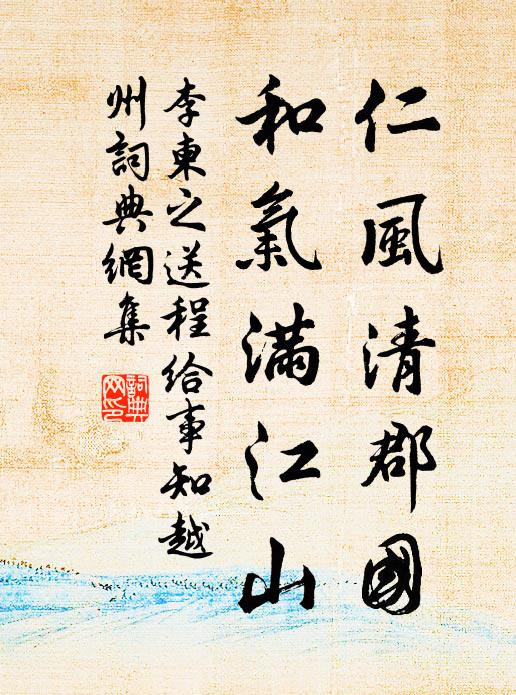 仁風清郡國
和氣滿江山
李東之送程給事知越
州詞典網集
詞典
网印